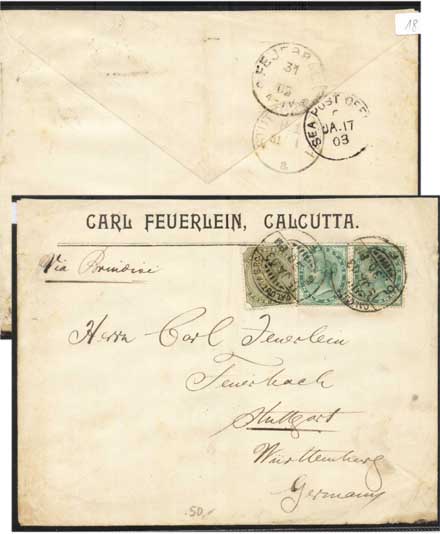 18
31
03
SEA POST OFF
JA.17
03
CARL FEUERLEIN, CALCUTTA.
Via Brindisi
Herrn Carl Feuerlein
Feuerbach
Stuttgart
Württemberg
Germany
.50